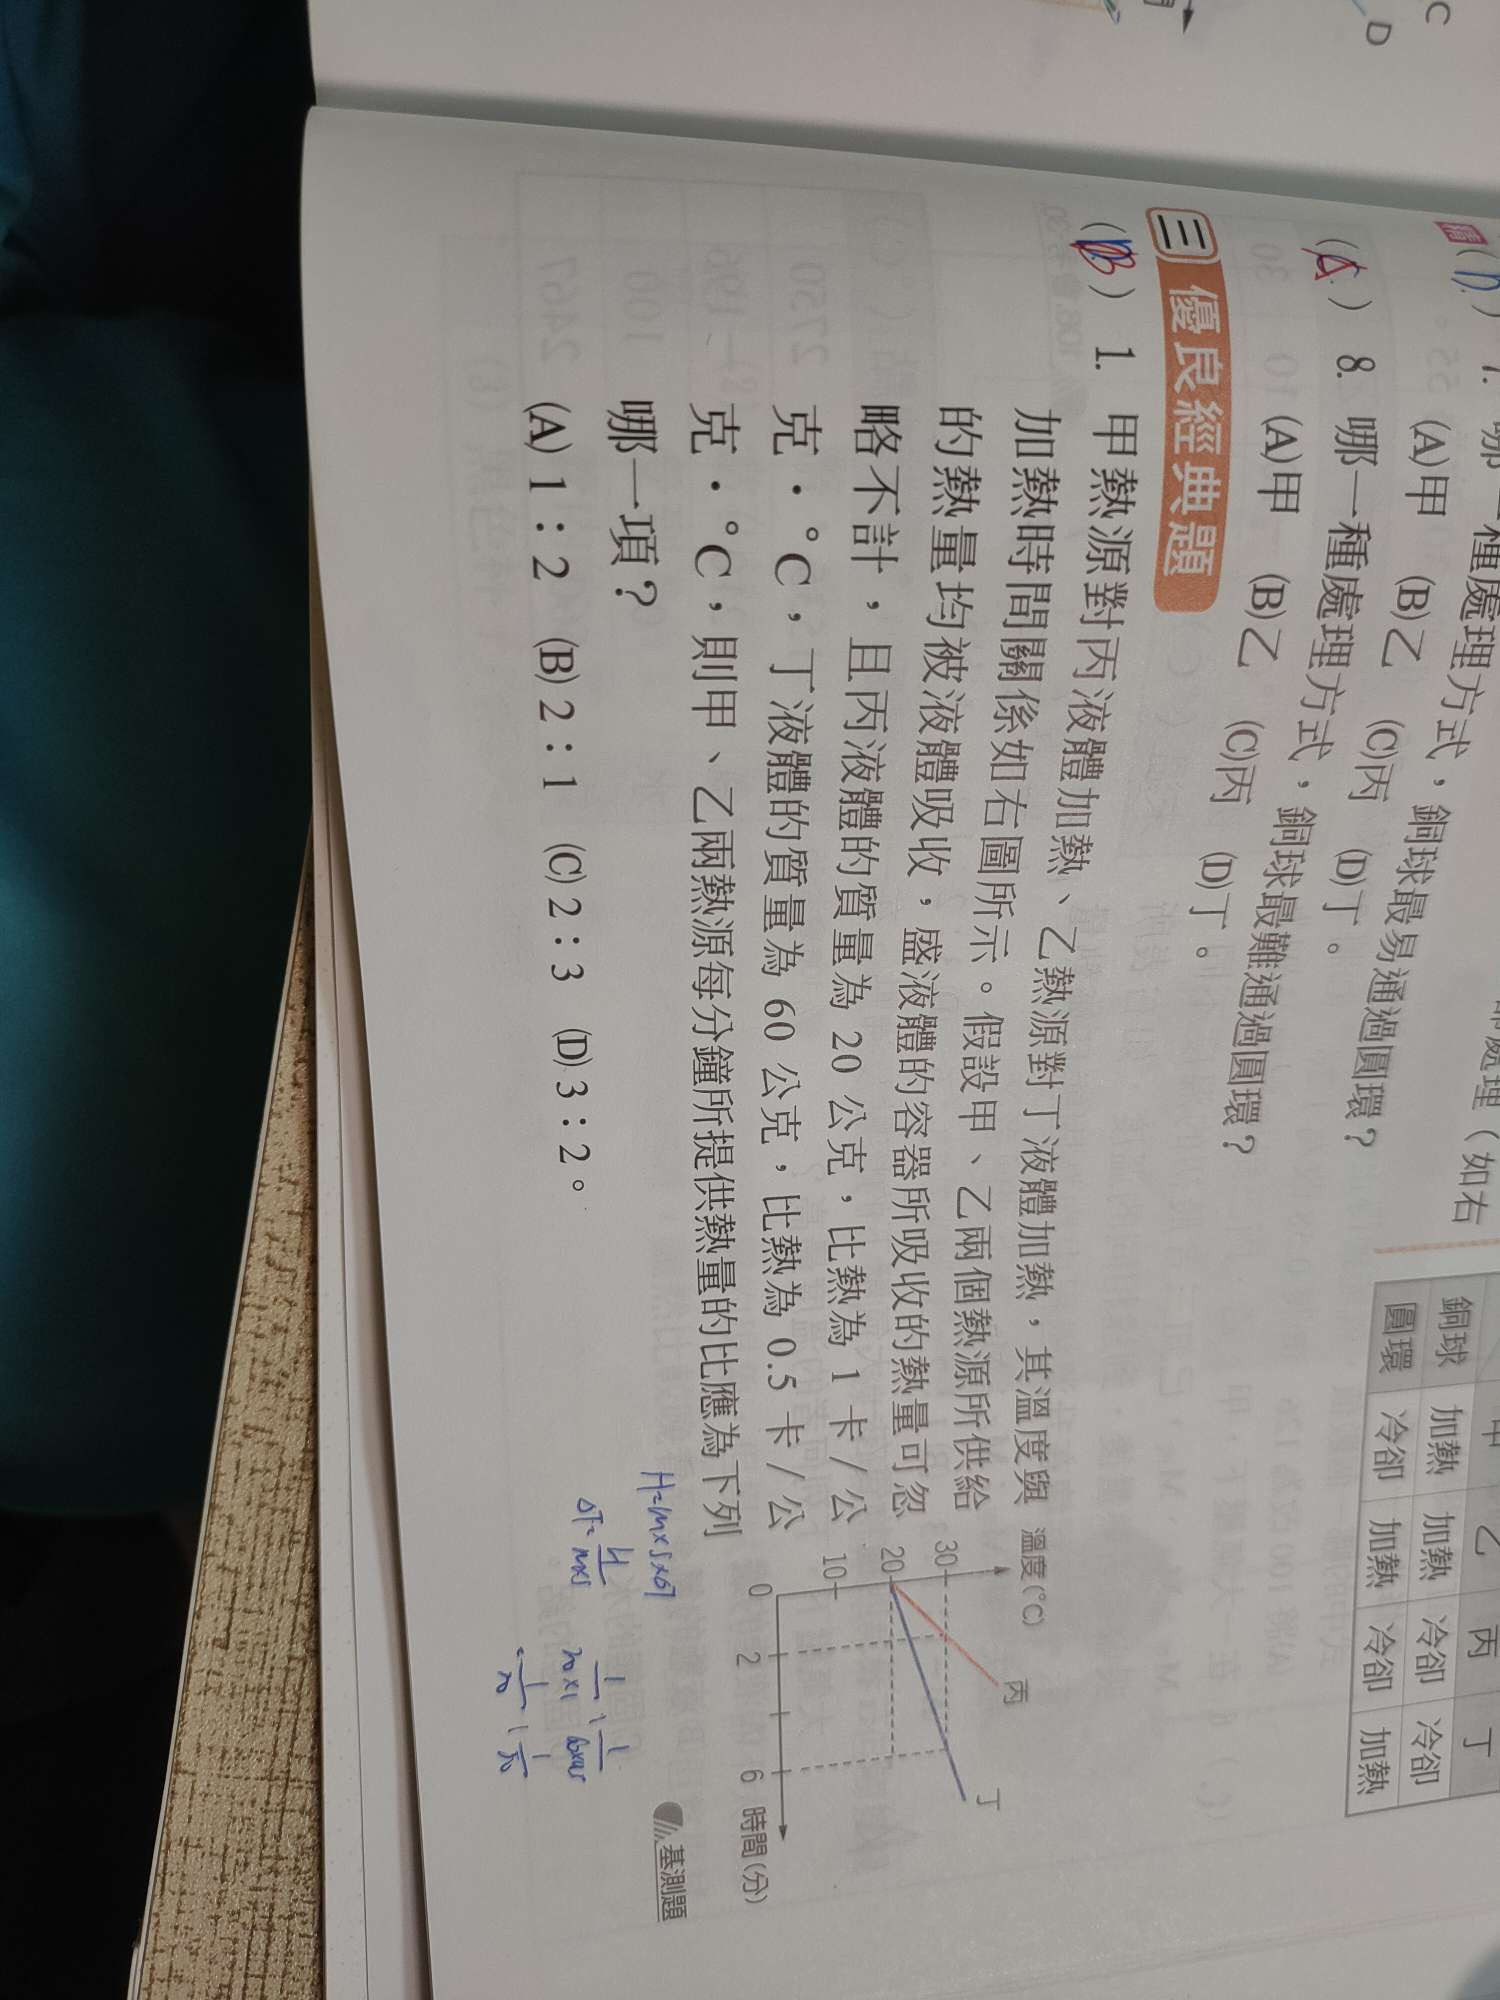 C
D
7. 哪一種處理方式，銅球最易通過圓環？
(A)甲 (B)乙 (C)丙 (D)丁。
8. 哪一種處理方式，銅球最難通過圓環？
(A)甲 (B)乙 (C)丙 (D)丁。
部處理（如右
乙 丙 丁
銅球 加熱 加熱 冷卻 冷卻
圓環 冷卻 加熱 冷卻 加熱
三 優良經典題
( B ) 1. 甲熱源對丙液體加熱、乙熱源對丁液體加熱，其溫度與
加熱時間關係如右圖所示。假設甲、乙兩個熱源所供給
的熱量均被液體吸收，盛液體的容器所吸收的熱量可忽
略不計，且丙液體的質量為 20 公克，比熱為 1 卡／公
克・℃，丁液體的質量為 60 公克，比熱為 0.5 卡／公
克・℃，則甲、乙兩熱源每分鐘所提供熱量的比應為下列
哪一項？
(A) 1：2 (B) 2：1 (C) 2：3 (D) 3：2。
溫度(℃)
30
20
10
0
2
6
時間(分)
丙
丁
基測題
H=m×s×ΔT
ΔT=H/m×s